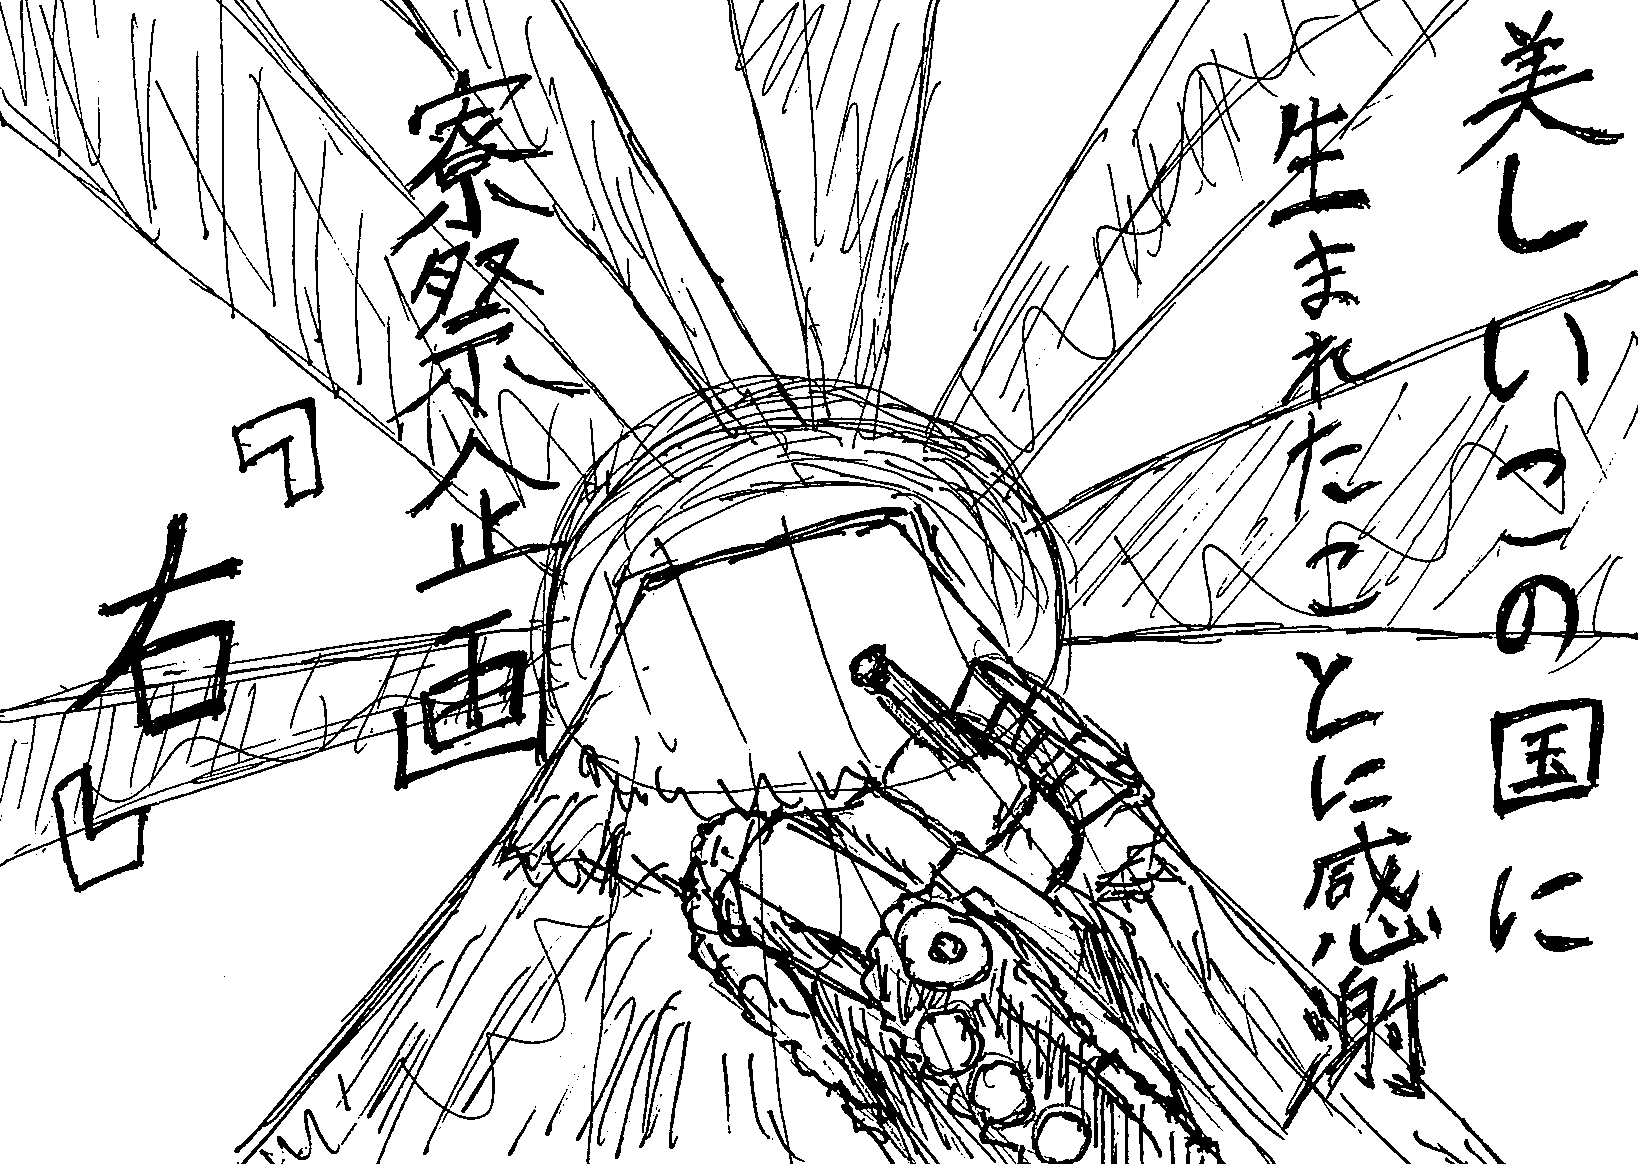 美しいこの国に
生まれたことに感謝
寮祭企画
『右』